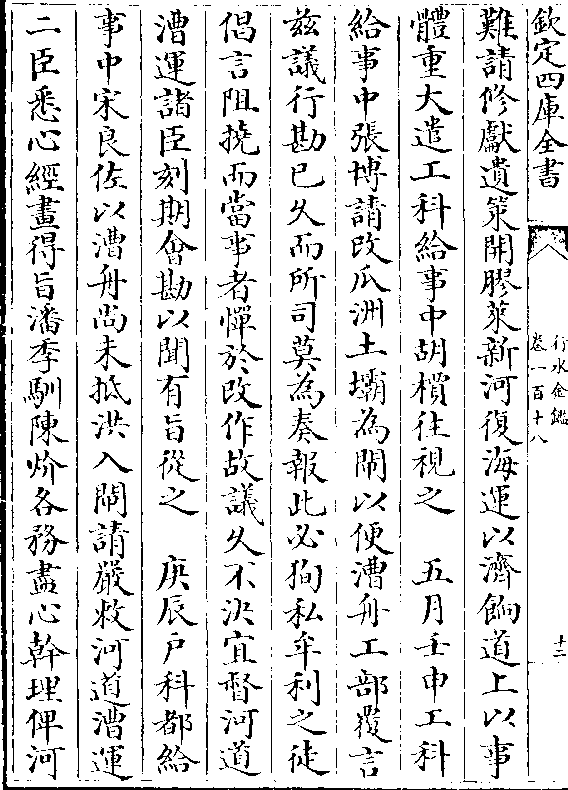 欽定四庫全書
行水金鑑
卷一百十八
十二
難請修獻遺策開膠萊新河復海運以濟餉道上以事
體重大遣工科給事中胡檟往視之　五月壬申工科
給事中張博請改瓜洲土壩為閘以便漕舟工部覆言
兹議行勘已久而所司莫為奏報此必狥私牟利之徒
倡言阻撓而當事者憚於改作故議久不決宜督河道
漕運諸臣刻期會勘以聞有旨從之　庚辰户科都給
事中宋良佐以漕舟尚未抵洪入閘請嚴敕河道漕運
二臣悉心經畫得旨潘季馴陳炌各務盡心幹理俾河